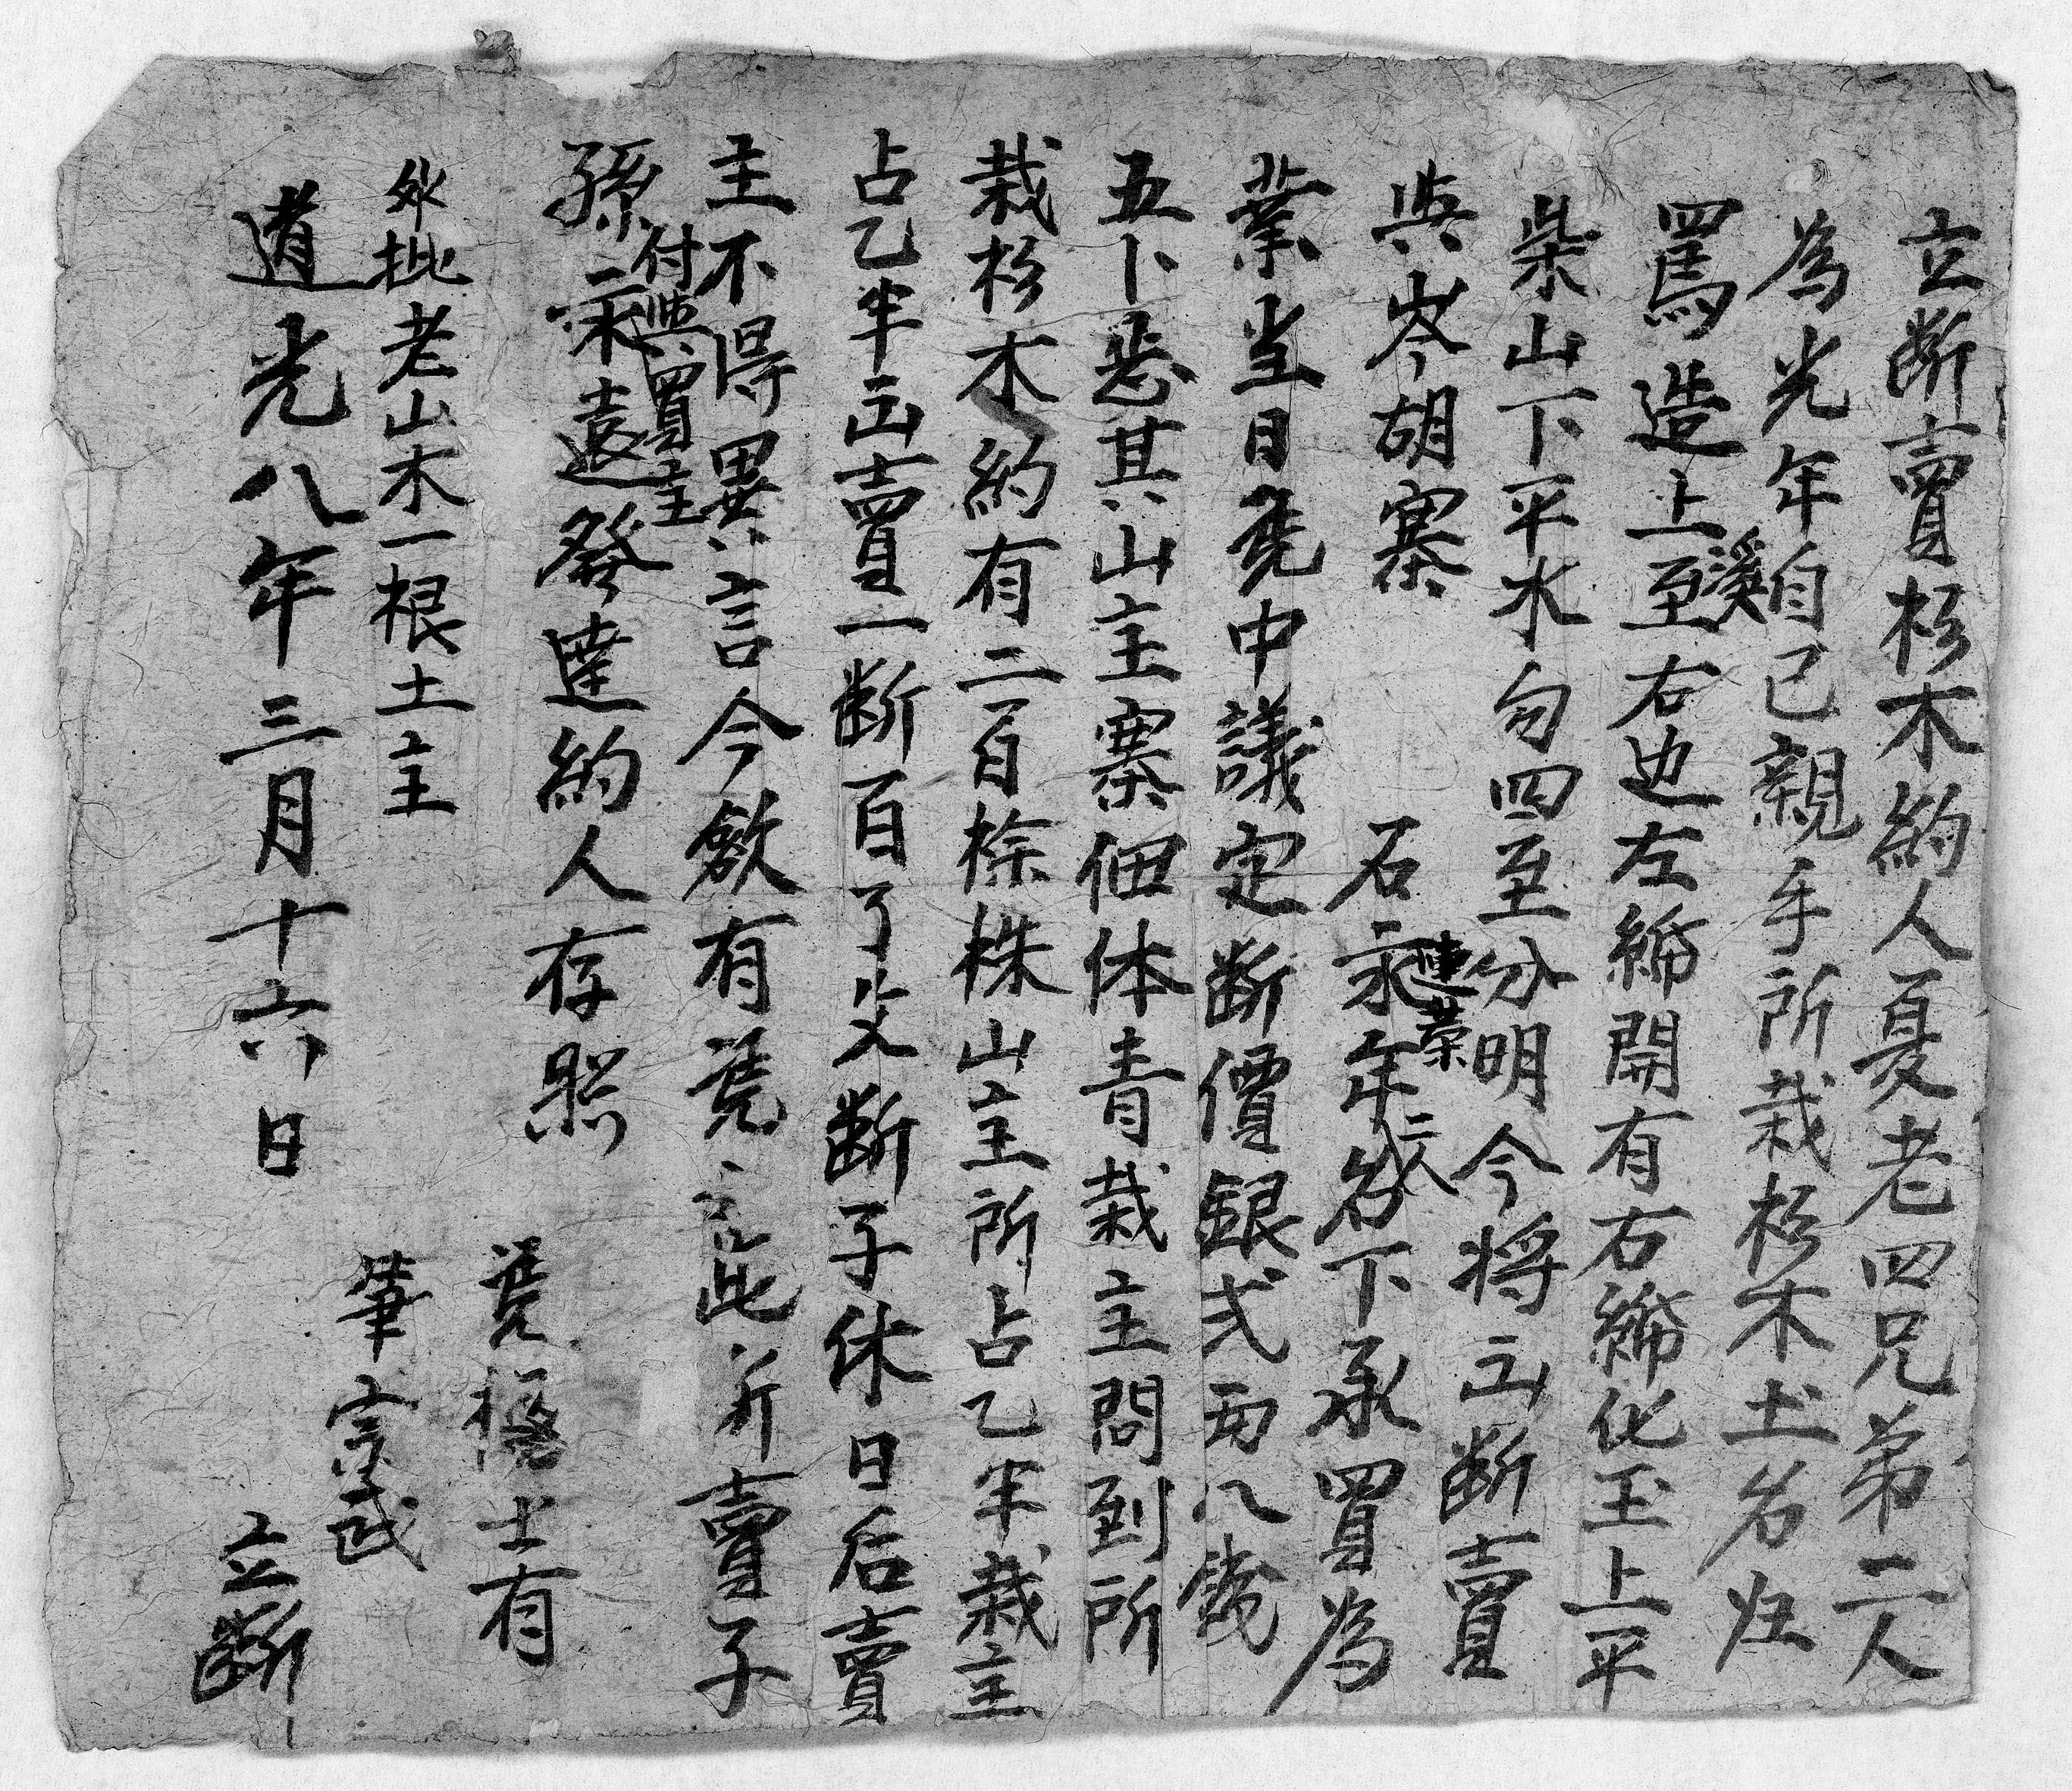 立断賣杉木約人夏老四兄弟二人
為光年自己親手所栽杉木土名归
罵造上至溪右边左綈開有右綈化玉上平
柴山下平水勾四至分明今将立断賣
與岑胡寨 石永連年榮二人名下承買為
業当日凭中議定断價銀弍两八錢
五卜悉其山主寨佃体青栽主問到所
栽杉木約有二百捈株山主所占乙半栽主
占乙半出賣一断百了父断子休日后賣
主不得異言今欲有凭立此斤賣子
孫付與買主永遠發達約人存照
凭 士有
外批老山木一根土主
筆宗武
道光八年三月十六日 立断